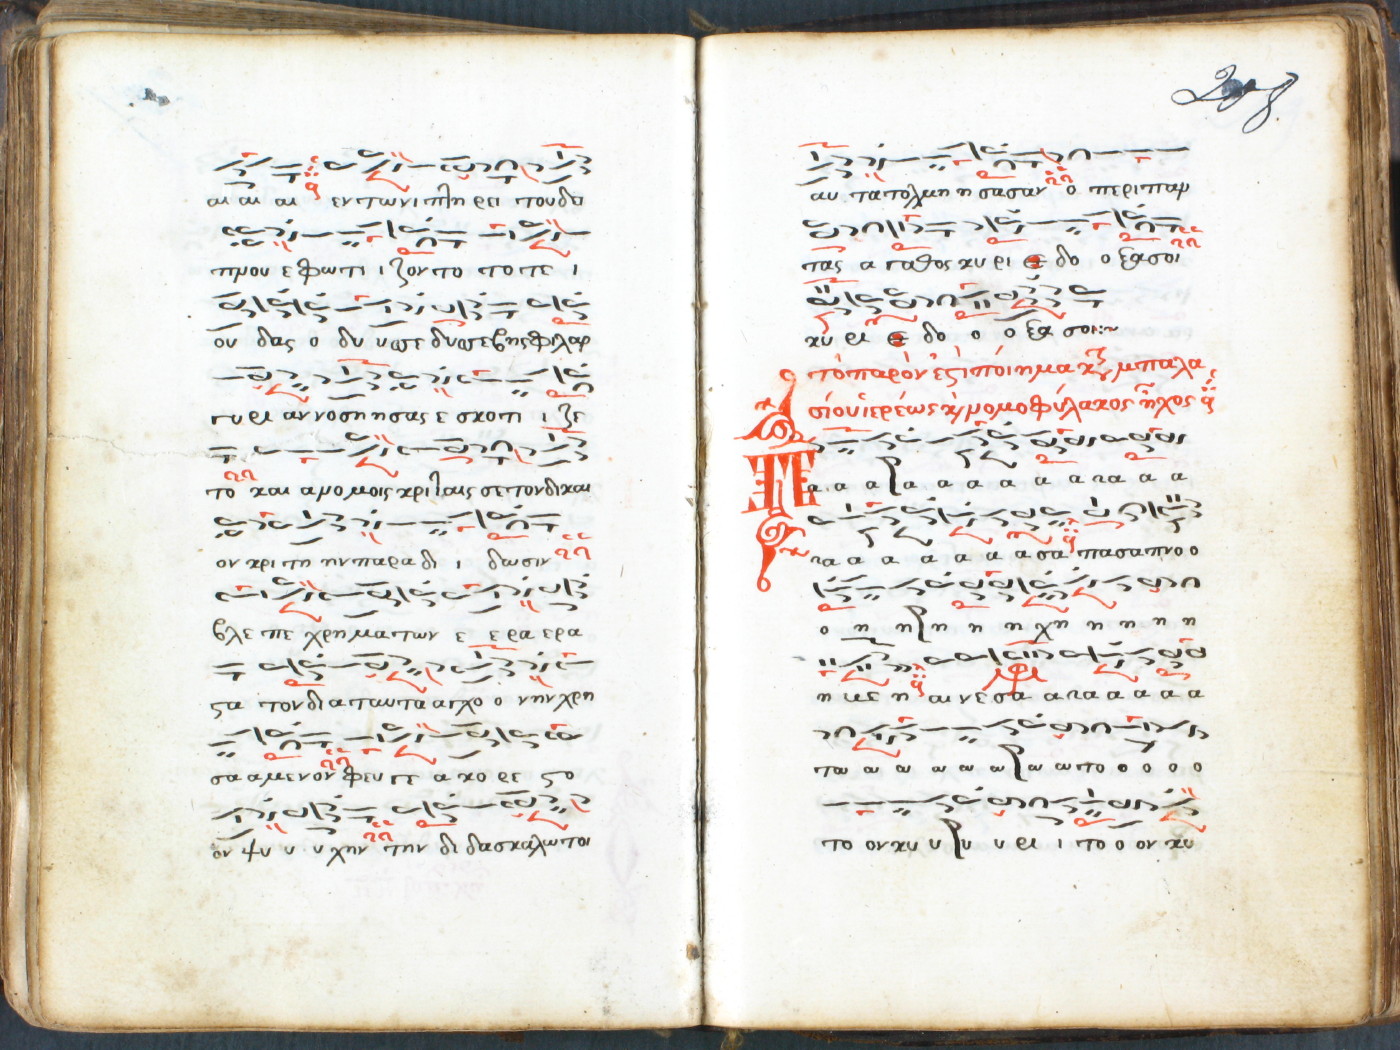 αι αι αι εν τω νιπτη ρει του δει
πνου ε φωτι ι ζον το το τε ι
ου δας ο δυ υσσε δυσσεβης φιλαρ
γυρι αν νοση η σας ε σκοτι ι ζε
το και ανομοις κριταις σε τον δικαι
ον κρι τη ην παρα δι ι δωσιν
βλε πε χρηματων ε ε ρα ερα
ςα τον δι α ταυτα αγχο ο νην χρη
σα αμενον φευ γε α κο ρε ςο
ον ψυ υ υ χην την δι δασκαλω τοι
αυ τα τολμη η σασαν ο περι παν
τας α γαθος κυ ρι ε δο ο ξα σοι
κυ ρι ε δο ο ο ξα σοι:~
τὸ παρὸν ἐςὶ ποίημα κυρ μπαλα
σίου ἱερέως κ νομοφύλακος ἦχος
Πα α α α α α α α α α γα α α
γα α α α α α α σα πασα πνο ο
ο η η η η η χη η η η η
η με η αι νε σα α γα α α α α
τω ω ω ω ω ω ω ω το ο ο ο ο
το ον κυ υ υ υ ρι ι το ο ον κυ